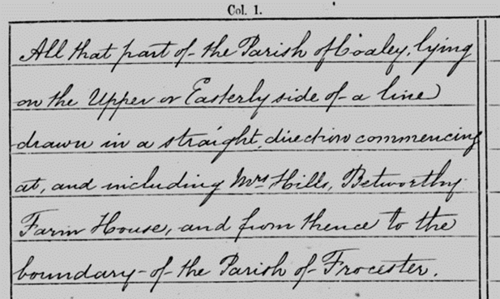 Col. 1.
All that part of the Parish of Coaley, lying
on the Upper or Easterly side of a line
drawn in a straight direction commencing
at, and including Mrs Hills, Betworthy
Farm House, and from thence to the
boundary of the Parish of Frocester.